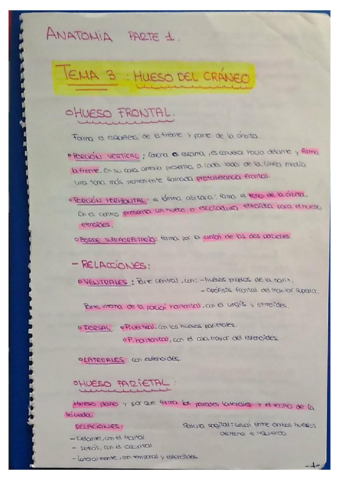 ANATOMIA PARTE 1.
TEMA 3: HUESO DEL CRÁNEO
HUESO FRONTAL.
Forma el esqueleto de la frente y parte de la órbita.
PORCIÓN VERTICAL: forma escama, es convexa hacia delante y forma
la frente. En su cara anterior presenta a lados de la línea media
una zona más prominente llamada protuberancia frontal.
PORCIÓN HORIZONTAL: forma el techo de la órbita.
En el centro presenta un hueco o escotadura etmoidal para el hueso
etmoides.
BORDE SUPRAORBITARIO: forma por la unión de las dos porciones.
- RELACIONES:
VENTRALES: Parte central, con: - huesos propios de la nariz.
- Apófisis frontal del maxilar superior.
Parte interna de la porción horizontal, con el unguis y etmoides.
DORSAL: P. vertical, con los huesos parietales.
P. horizontal, con el ala mayor del esfenoides.
LATERALES: con esfenoides.
HUESO PARIETAL
Hueso plano y par que forma las paredes laterales y el techo de la
bóveda.
RELACIONES:
Sutura sagital: unión entre ambos huesos
derecho e izquierdo
- Delante, con el frontal
- Detrás, con el occipital
- Lateralmente, con temporal y esfenoides.
-1-